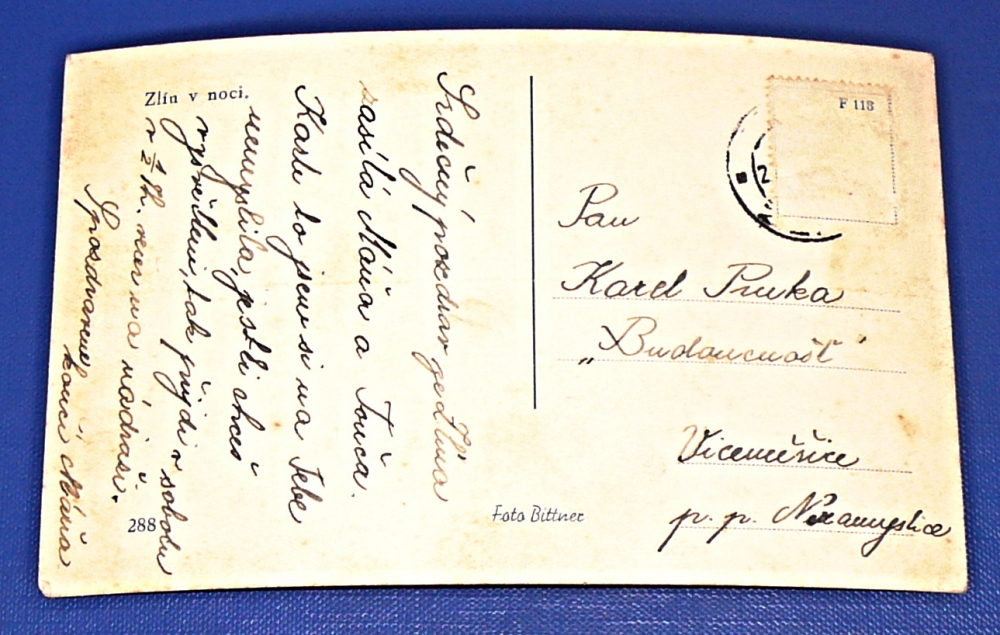 Zlín v noci.
Srdečný pozdrav ze Zlína
zasílá Máňa a Tonča.
Karle to jsem si na Tebe
nevzpomněla, jestli chceš
vysvětlení, tak přijdi v sobotu
v ½ 8h. večer na nádraží.
S pozdravem
končí Máňa
288
Foto Bittner
F 113
2
Pan
Karel Pinka
„Budoucnost"
Viceměřice
p. p. Nezamyslice